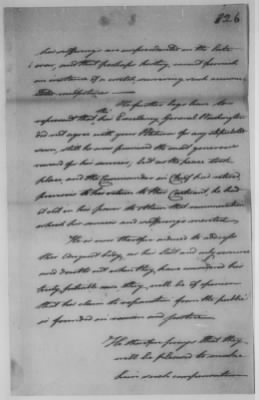 826
his sufferings are unprecedented in the late
war, and that perhaps history cannot furnish
an instance of a wretch, surviving such accumu-
lated misfortunes
He further begs leave to
represent that his Excellency General Washington
did not agree with your Petitioner for any stipulated
sum, still he was promised the most generous
reward for his services, but as the peace took
place, and the Commander in Chief had retired
previous to his return to this Continent, he had
it not in his power to obtain that
which his services and sufferings merited.
He is now therefore advised to address
this august body, as his last and only resource
and doubts not when they have considered his
truly pitiable case they will be of opinion
that his claim to reparation from the public
is founded in reason and justice
He therefore prays that they
will be pleased to make
him such compensation